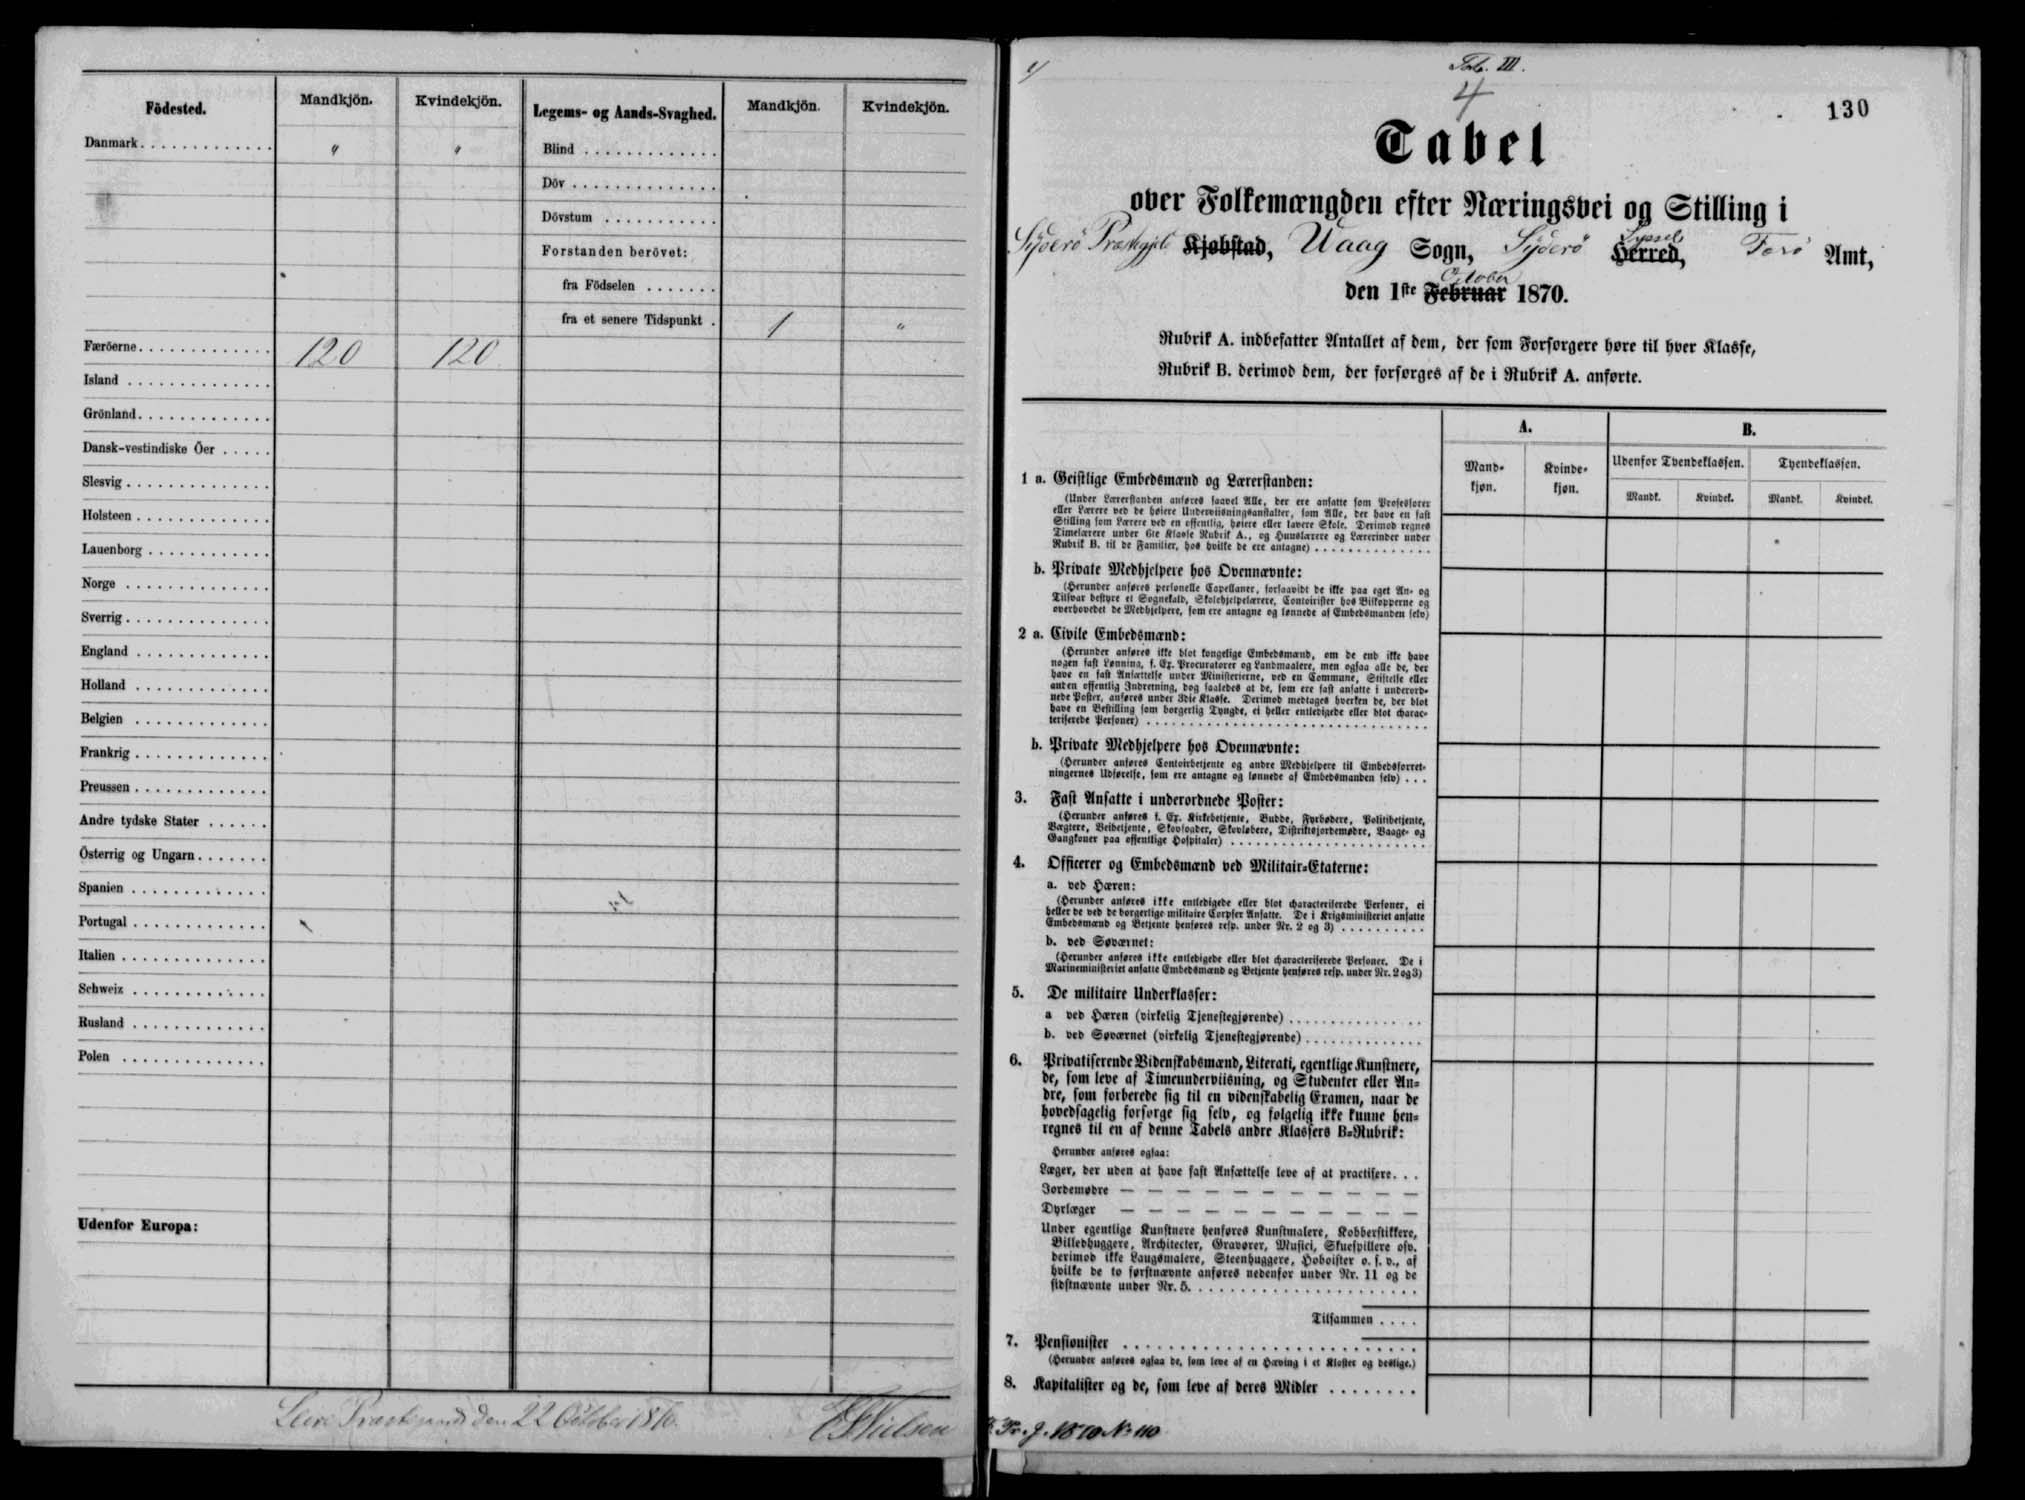 Födested. Mandkjön. Kvindekjön. Legems- og Aands-Svaghed. Mandkjön. Kvindekjön.
Danmark. . . . . . . . . . . . . " " Blind . . . . . . . . . . . . .
Döv . . . . . . . . . . . . . .
Dövstum . . . . . . . . . . .
Forstanden berövet:
fra Födselen . . . . . . .
fra et senere Tidspunkt . 1 "
Færöerne. . . . . . . . . . . . . 120 120
Island . . . . . . . . . . . . . .
Grönland. . . . . . . . . . . . .
Dansk-vestindiske Öer . . . . .
Slesvig . . . . . . . . . . . . . .
Holsteen . . . . . . . . . . . . .
Lauenborg . . . . . . . . . . . .
Norge . . . . . . . . . . . . . .
Sverrig . . . . . . . . . . . . . .
England . . . . . . . . . . . . .
Holland . . . . . . . . . . . . .
Belgien . . . . . . . . . . . . .
Frankrig . . . . . . . . . . . . .
Preussen . . . . . . . . . . . . .
Andre tydske Stater . . . . . .
Österrig og Ungarn . . . . . . .
Spanien . . . . . . . . . . . . .
Portugal . . . . . . . . . . . . .
Italien . . . . . . . . . . . . . .
Schweiz . . . . . . . . . . . . .
Rusland . . . . . . . . . . . . .
Polen . . . . . . . . . . . . . .
Udenfor Europa:
den 22 October 1870.
Nielsen
Tab. III.
4
130
Tabel
over Folkemængden efter Næringsvei og Stilling i
Syderö Præstegjeld Kjøbstad, Vaag Sogn, Syderö Herred, Syssel Ferö Amt,
den 1ste Februar October 1870.
Rubrik A. indbefatter Antallet af dem, der som Forsørgere høre til hver Klasse,
Rubrik B. derimod dem, der forsørges af de i Rubrik A. anførte.
A. B.
Mand-kjøn. Kvinde-kjøn. Udenfor Tyendeklassen. Tyendeklassen.
Mandk. Kvindek. Mandk. Kvindek.
1 a. Geistlige Embedsmænd og Lærerstanden:
(Under Lærerstanden anføres saavel Alle, der ere ansatte som Professorer
eller Lærere ved de høiere Underviisningsanstalter, som Alle, der have en fast
Stilling som Lærere ved en offentlig, høiere eller lavere Skole. Derimod regnes
Timelærere under 6te Klasse Rubrik A., og Huuslærere og Lærerinder under
Rubrik B. til de Familier, hos hvilke de ere antagne) . . . . . . . . . . . . . .
b. Private Medhjelpere hos Ovennævnte:
(Herunder anføres personelle Capellaner, forsaavidt de ikke paa eget An- og
Tilsvar bestyre et Sognekald, Skolehjelpelærere, Contoirister hos Biskopperne og
overhovedet de Medhjelpere, som ere antagne og lønnede af Embedsmanden selv)
2 a. Civile Embedsmænd:
(Herunder anføres ikke blot kongelige Embedsmænd, om de end ikke have
nogen fast Lønning, f. Ex. Procuratorer og Landmaalere, men ogsaa alle de, der
have en fast Ansættelse under Ministerierne, ved en Commune, Stiftelse eller
anden offentlig Indretning, dog saaledes at de, som ere fast ansatte i underord-
nede Poster, anføres under 3die Klasse. Derimod medtages hverken de, der blot
have en Bestilling som borgerlig Tyngde, ei heller entledigede eller blot charac-
teriserede Personer) . . . . . . . . . . . . . . . . . . . . . . . . . . . .
b. Private Medhjelpere hos Ovennævnte:
(Herunder anføres Contoirbetjente og andre Medhjelpere til Embedsforret-
ningernes Udførelse, som ere antagne og lønnede af Embedsmanden selv) . . .
3. Fast Ansatte i underordnede Poster:
(Herunder anføres f. Ex. Kirkebetjente, Budde, Fyrbødere, Politibetjente,
Vægtere, Veibetjente, Skovfogder, Skovløbere, Distriktsjordemødre, Vaage- og
Gangkoner paa offentlige Hospitaler) . . . . . . . . . . . . . . . . . . . .
4. Officerer og Embedsmænd ved Militair-Etaterne:
a. ved Hæren:
(Herunder anføres ikke entledigede eller blot characteriserede Personer, ei
heller de ved de borgerlige militaire Corpser Ansatte. De i Krigsministeriet ansatte
Embedsmænd og Betjente henføres resp. under Nr. 2 og 3) . . . . . . . . . .
b. ved Søværnet:
(Herunder anføres ikke entledigede eller blot characteriserede Personer. De i
Marineministeriet ansatte Embedsmænd og Betjente henføres resp. under Nr. 2 og 3)
5. De militaire Underklasser:
a ved Hæren (virkelig Tjenestegjørende) . . . . . . . . . . . . .
b. ved Søværnet (virkelig Tjenestegjørende) . . . . . . . . . . . .
6. Privatiserende Videnskabsmænd, Literati, egentlige Kunstnere,
de, som leve af Timeunderviisning, og Studenter eller An-
dre, som forberede sig til en videnskabelig Examen, naar de
hovedsagelig forsørge sig selv, og følgelig ikke kunne hen-
regnes til en af denne Tabels andre Klassers B-Rubrik:
Herunder anføres ogsaa:
Læger, der uden at have fast Ansættelse leve af at practisere. . .
Jordemødre — — — — — — — — — — —
Dyrlæger — — — — — — — — — — —
Under egentlige Kunstnere henføres Kunstmalere, Kobberstikkere,
Billedhuggere, Architecter, Gravører, Musici, Skuespillere osv.
derimod ikke Laugsmalere, Steenhuggere, Hoboister o. s. v., af
hvilke de to førstnævnte anføres nedenfor under Nr. 11 og de
sidstnævnte under Nr. 5. . . . . . . . . . . . . . . . . . . . .
Tilsammen . . . .
7. Pensionister . . . . . . . . . . . . . . . . . . . . . . . .
(Herunder anføres ogsaa de, som leve af en Hæving i et Kloster og deslige.)
8. Kapitalister og de, som leve af deres Midler . . . . . . . .
Pr. J. 1870 No 110